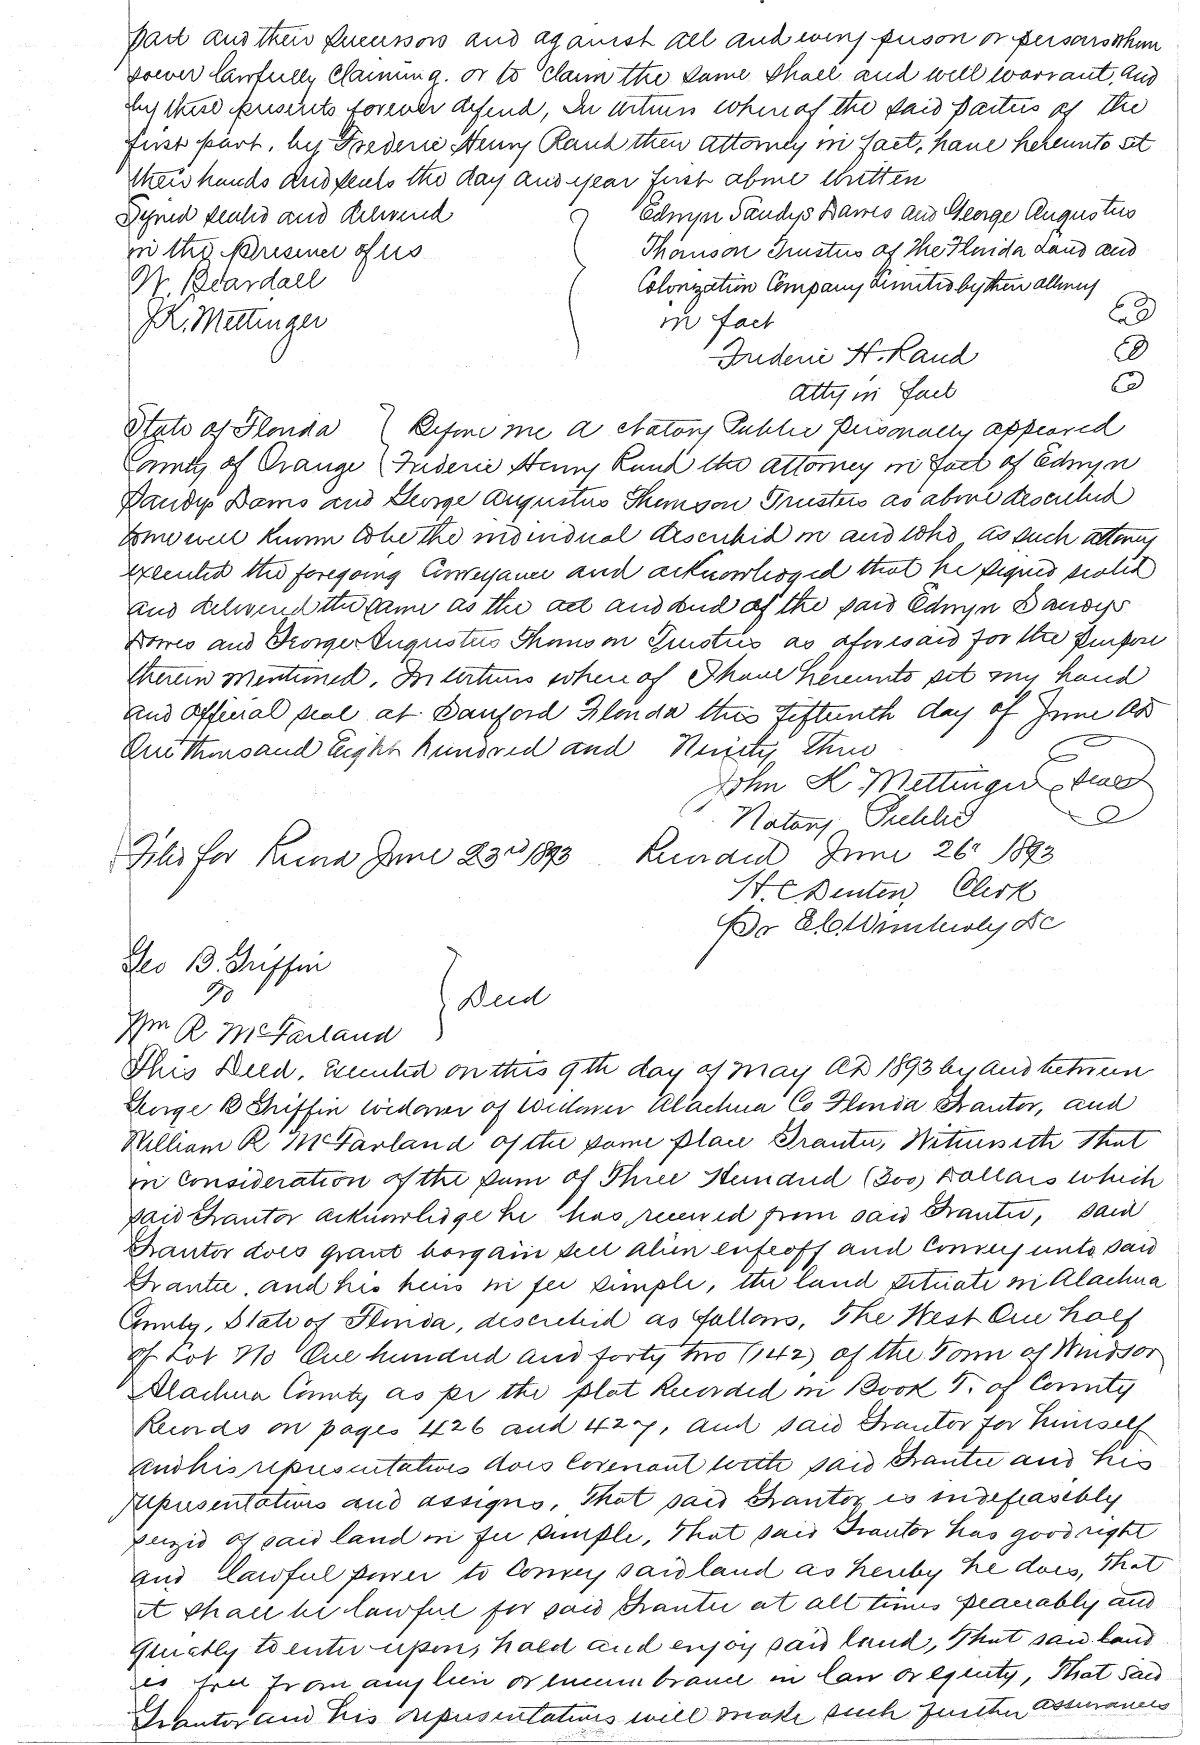 part and their successors and against all and every person or persons whom
soever lawfully claiming. or to claim the same shall and will warrant, and
by these presents forever defend, In witness where of the said parties of the
first part, by Frederic Henry Rand their attorney in fact, have hereunto set
their hands and seals the day and year first above written
Signed sealed and delivered
in the presence of us
W. Beardall
J.K. Mettinger
Edwyn Sandys Dawes and George Augustus
Thomson Trustees of The Florida Land and
Colonization Company Limited by their attorney
in fact
Frederic H. Rand
atty in fact
State of Florida } Before me a Notary Public personally appeared
County of Orange { Frederic Henry Rand the attorney in fact of Edwyn
Sandys Dawes and George Augustus Thomson Trustees as above described
to me well known to be the individual described in and who as such attorney
executed the foregoing Conveyance and acknowledged that he signed sealed
and delivered the same as the act and deed of the said Edwyn Sandys
Dawes and George Augustus Thomson Trustees as aforesaid for the purpose
therein mentioned. In witness where of I have hereunto set my hand
and official seal at Sanford Florida this fifteenth day of June AD
One thousand Eight hundred and Ninety three
John K. Mettinger Seal
Notary Public
Filed for Record June 23rd 1893 Recorded June 26" 1893
H.C. Denton, Clerk
Pr E.C. Wimberly DC
Geo B. Griffin
To
Wm R McFarland
} Deed
This Deed, Executed on this 9th day of May AD 1893 by and between
George B Griffin widower of Widower Alachua Co Florida Grantor, and
William R McFarland of the same place Grantee, Witnesseth that
in consideration of the sum of Three Hundred (300) Dollars which
said Grantor acknowledge he has received from said Grantee, said
Grantor does grant bargain sell alien enfeoff and Convey unto said
Grantee, and his heirs in fee simple, the land situate in Alachua
County, State of Florida, described as follows, The West One half
of Lot No One hundred and forty two (142) of the Town of Windsor
Alachua County as per the plat Recorded in Book T. of County
Records on pages 426 and 427, and said Grantor for himself
and his representatives does Covenant with said Grantee and his
representatives and assigns, That said Grantor is indefeasibly
seized of said land in fee simple, that said Grantor has good right
and lawful power to Convey said land as hereby he does, That
it shall be lawful for said Grantee at all times peaceably and
quietly to enter upon, hold and enjoy said land, that said land
is free from any lien or encumbrance in law or equity, That said
Grantor and his representatives will make such further assurances